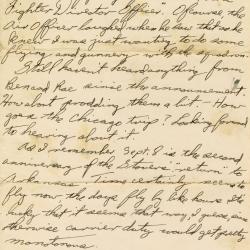 Fighter Director Officer". Of course, the
Air Officer laughed when he saw that as he
knew I was just wanting to do some
flying and gunnery with the squadron.
Still haven't heard anything from
Bernard Rae since the announcement.
How about prodding them a bit - How
goes the Chicago trip? Looking forward
to hearing about it.
As I remember, Sept. 8 is the second
anniversary of the Stovers' "return" to
Arkansas. Time certainly seems to
fly now, the days fly by like hours. It's
lucky that it seems that way, I guess, as
otherwise carrier duty would get pretty
monotonous.